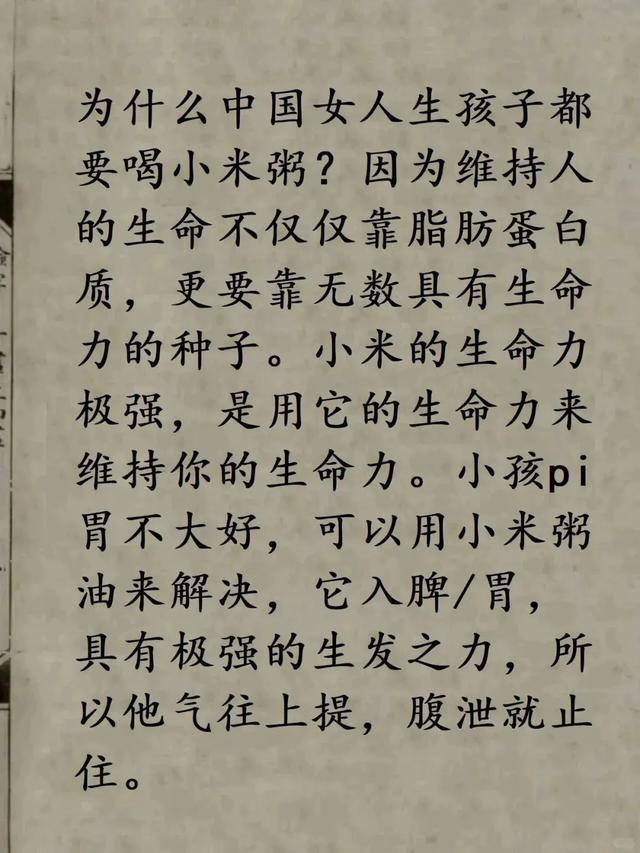 为什么中国女人生孩子都
要喝小米粥？因为维持人
的生命不仅仅靠脂肪蛋白
质，更要靠无数具有生命
力的种子。小米的生命力
极强，是用它的生命力来
维持你的生命力。小孩pi
胃不大好，可以用小米粥
油来解决，它入脾/胃，
具有极强的生发之力，所
以他气往上提，腹泄就止
住。